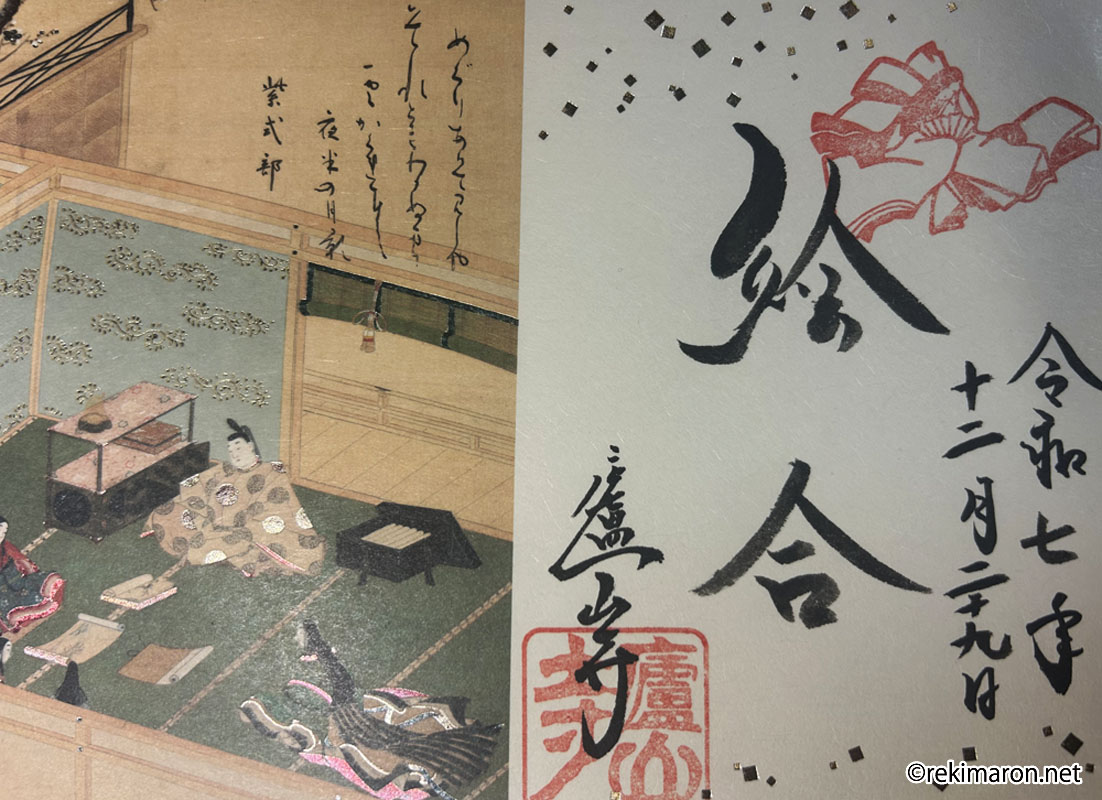 令和七年
十二月二十九日
絵合
廬山寺
廬山寺
めぐりあひて見しや
それともわかぬまに
雲かくれにし
夜半の月影
紫式部
©rekimaron.net